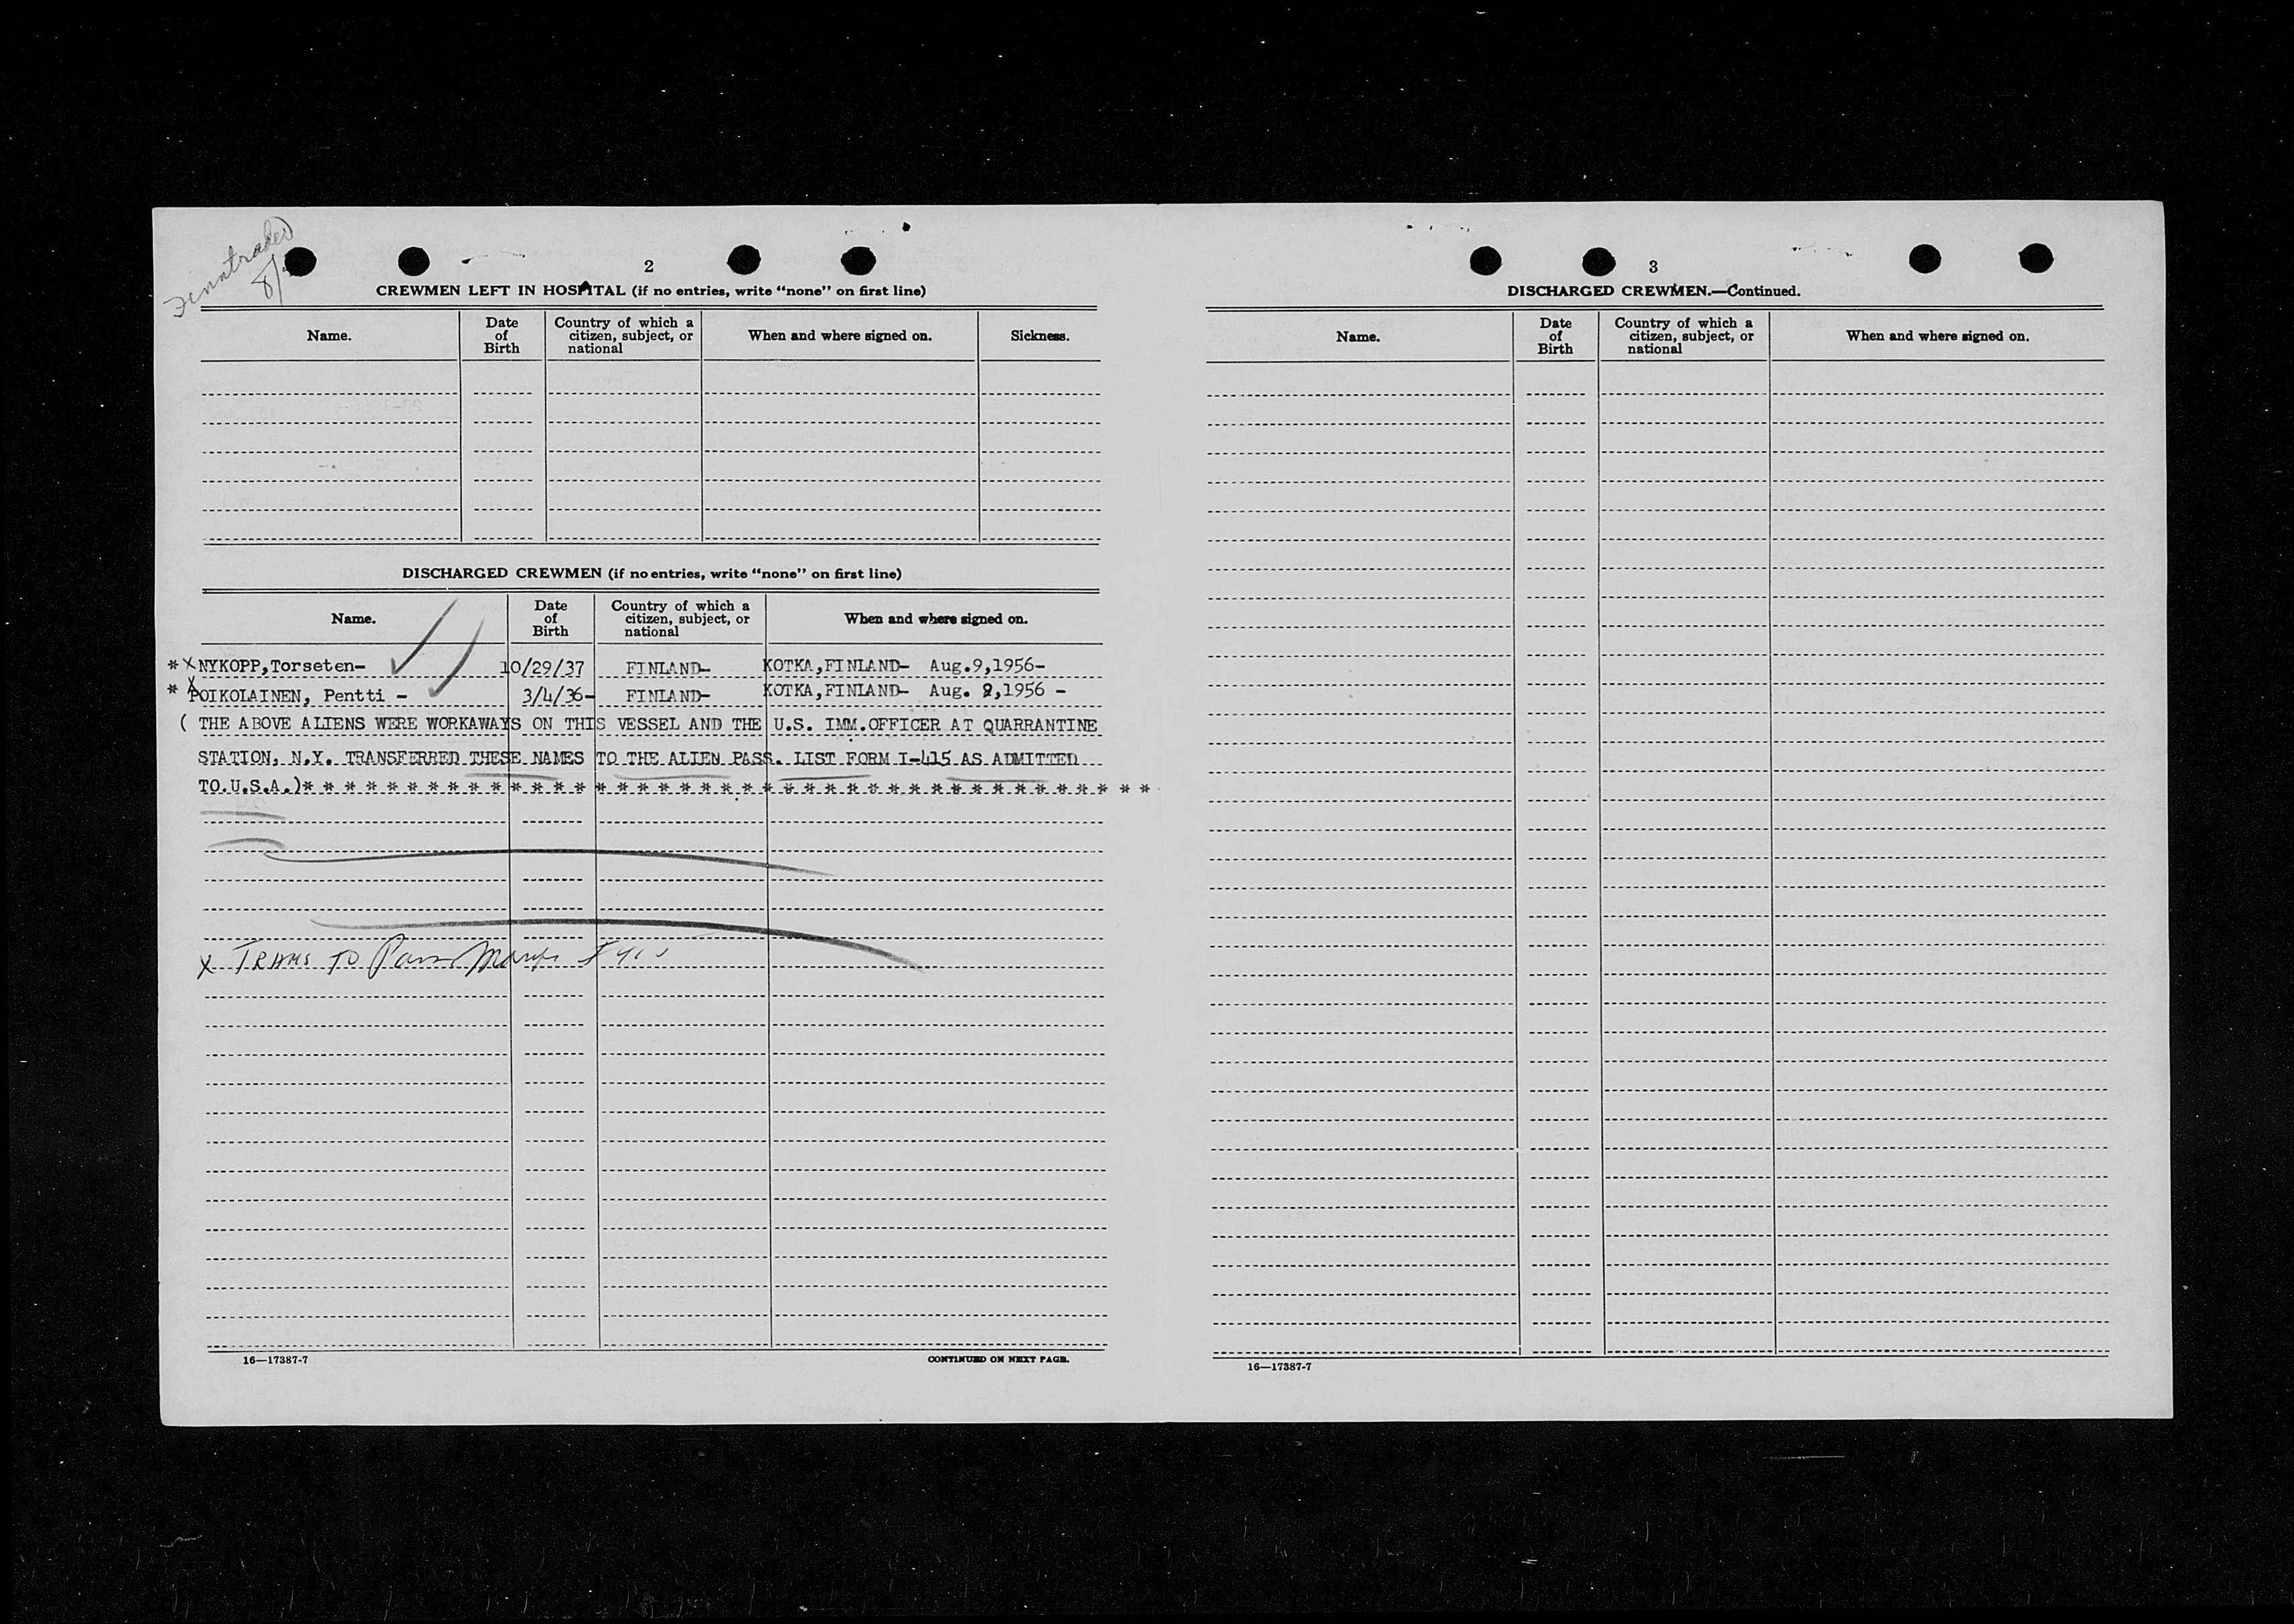 Finntrader
8/
2
CREWMEN LEFT IN HOSPITAL (if no entries, write “none” on first line)
Name. Date of Birth Country of which a citizen, subject, or national When and where signed on. Sickness.
DISCHARGED CREWMEN (if no entries, write “none” on first line)
Name. Date of Birth Country of which a citizen, subject, or national When and where signed on.
* X NYKOPP,Torseten- 10/29/37 FINLAND- KOTKA,FINLAND- Aug.9,1956-
* X POIKOLAINEN, Pentti - 3/4/36- FINLAND- KOTKA,FINLAND- Aug. 9,1956 -
( THE ABOVE ALIENS WERE WORKAWAYS ON THIS VESSEL AND THE U.S. IMM.OFFICER AT QUARRANTINE
STATION, N.Y. TRANSFERRED THESE NAMES TO THE ALIEN PASS. LIST FORM I-415 AS ADMITTED
TO.U.S.A.)* * * * * * * * * * * * * * * * * * * * * * * * * * * * * * * * * * * * * * * * *
X TRANS TO Pass Manif
16—17387-7 CONTINUED ON NEXT PAGE.
3
DISCHARGED CREWMEN.—Continued.
Name. Date of Birth Country of which a citizen, subject, or national When and where signed on.
16—17387-7